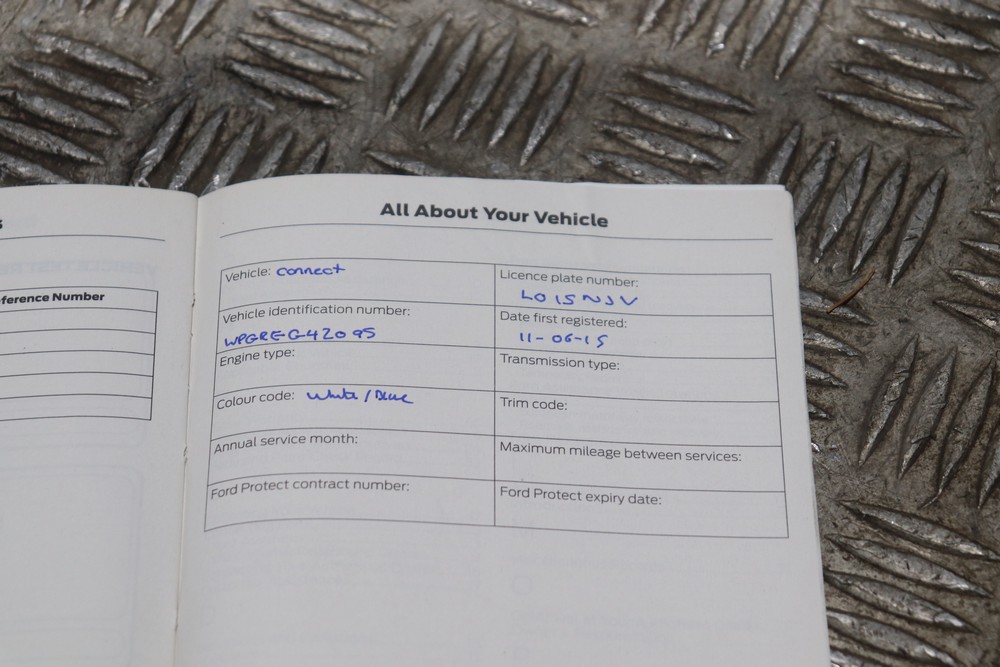 s
ference Number
All About Your Vehicle
Vehicle: connect
Licence plate number:
LO15NJV
Vehicle identification number:
WPGREG42095
Date first registered:
11-06-15
Engine type:
Transmission type:
Colour code: White/Blue
Trim code:
Annual service month:
Maximum mileage between services:
Ford Protect contract number:
Ford Protect expiry date: